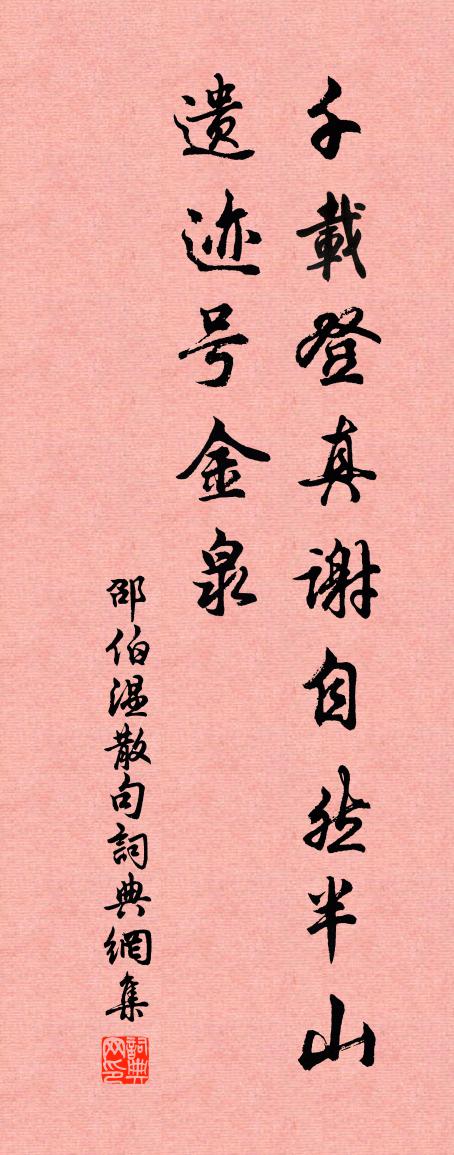 千載登真谢自然半山
遗迹号金泉
邵伯温散句詞典網集
詞典网印